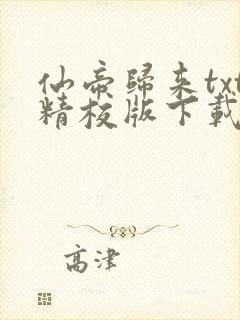 仙帝歸来txt
精校版下載
高津